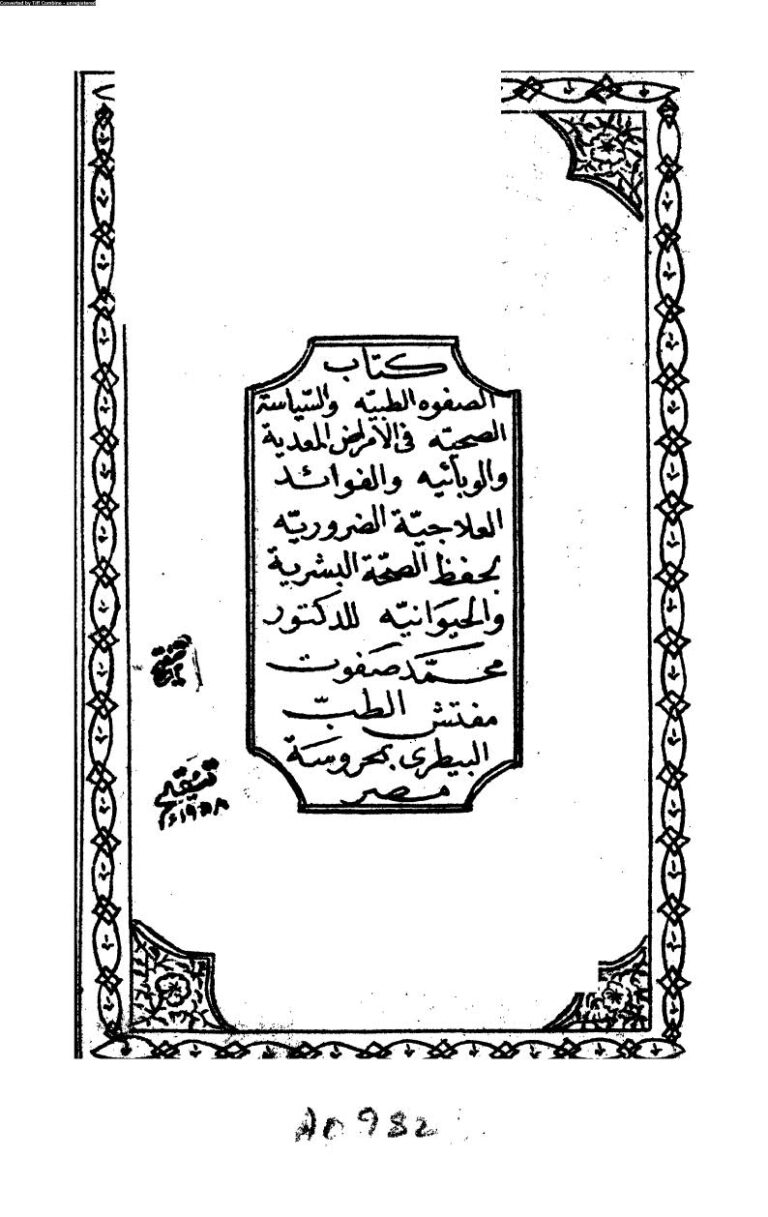 Converted by Tiff Combine - unregistered
كتاب
الصفوه الطبيّه والسّياسة
الصحيّه فى الأمراض المعدية
والوبائيه والفوائد
العلاجيّة الضروريّه
لحفظ الصحّة البشرية
والحيوانيّه للدكتور
محمّد صفوت
مفتش الطبّ
البيطرى بمحروسة
مصر